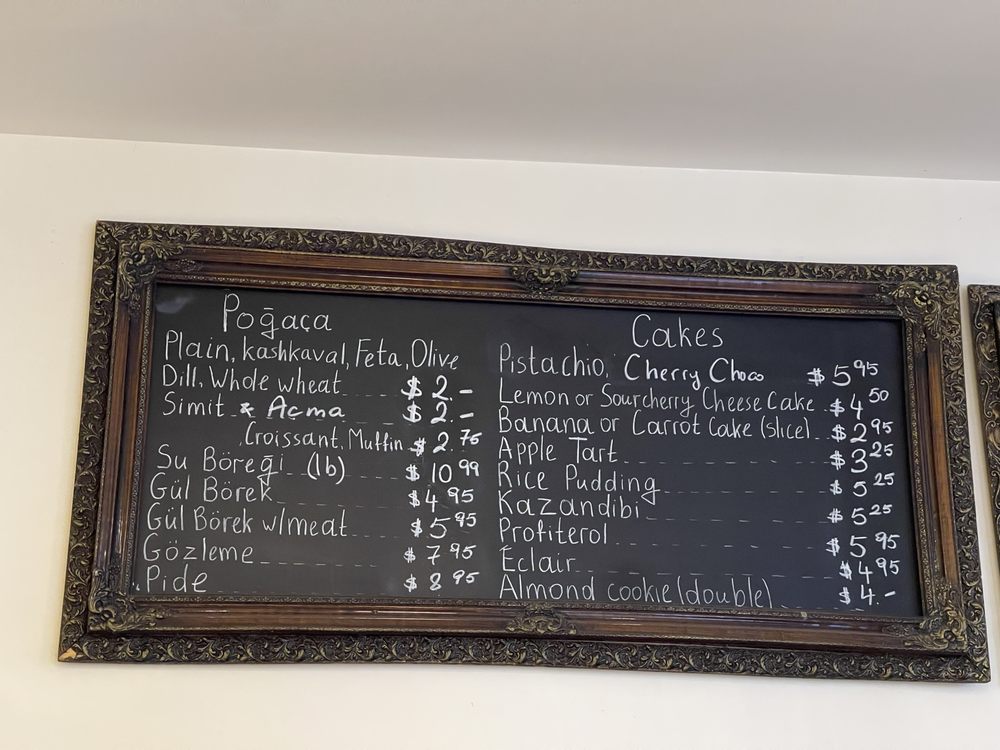 Poğaça
Plain, kashkaval, Feta, Olive
Dill, Whole wheat $2.-
Simit & Açma $2.-
Croissant, Muffin $2.75
Su Böreği (lb) $10.99
Gül Börek $4.95
Gül Börek w/meat $5.95
Gözleme $7.95
Pide $8.95
Cakes
Pistachio, Cherry Choco $5.95
Lemon or Sourcherry Cheese Cake $4.50
Banana or Carrot Cake (slice) $2.95
Apple Tart $3.25
Rice Pudding $5.25
Kazandibi $5.25
Profiterol $5.95
Eclair $4.95
Almond cookie (double) $4.-